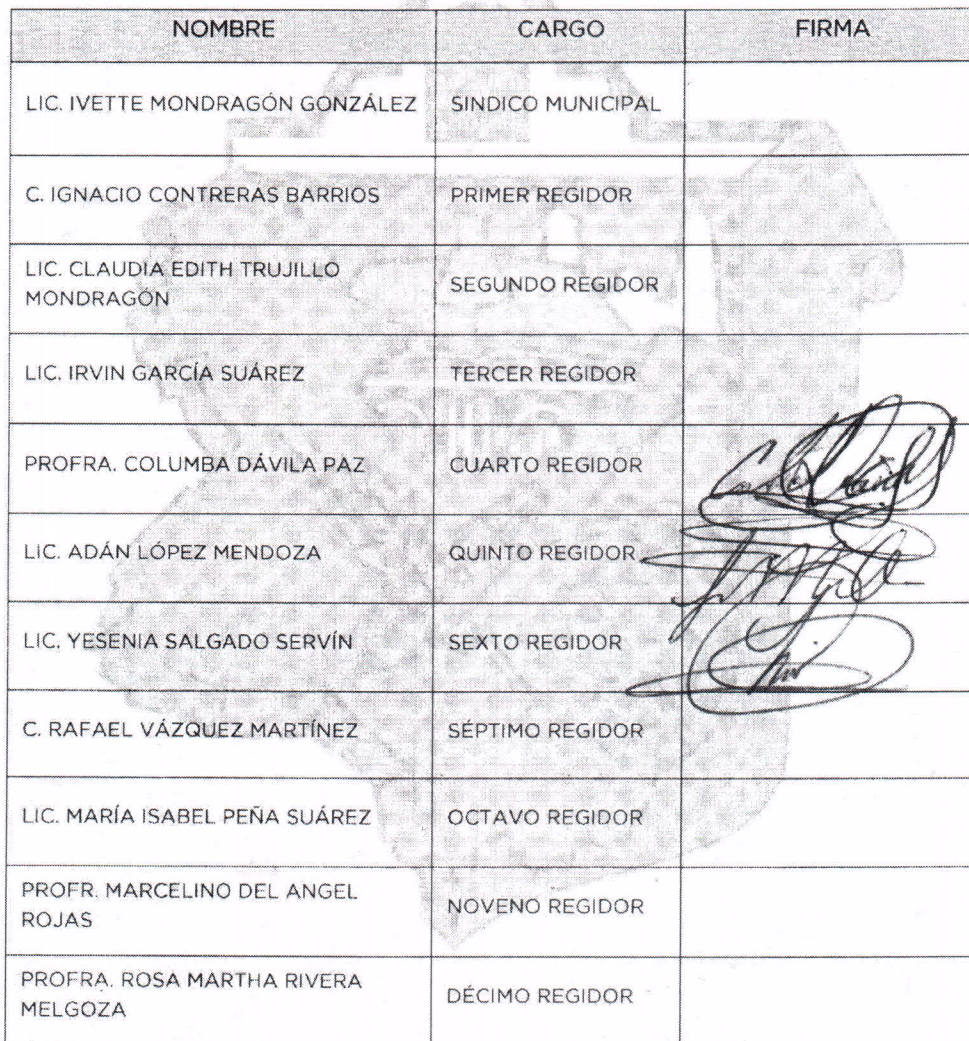 NOMBRE CARGO FIRMA
LIC. IVETTE MONDRAGÓN GONZÁLEZ SINDICO MUNICIPAL
C. IGNACIO CONTRERAS BARRIOS PRIMER REGIDOR
LIC. CLAUDIA EDITH TRUJILLO
MONDRAGÓN SEGUNDO REGIDOR
LIC. IRVIN GARCÍA SUÁREZ TERCER REGIDOR
PROFRA. COLUMBA DÁVILA PAZ CUARTO REGIDOR
LIC. ADÁN LÓPEZ MENDOZA QUINTO REGIDOR
LIC. YESENIA SALGADO SERVÍN SEXTO REGIDOR
C. RAFAEL VÁZQUEZ MARTÍNEZ SÉPTIMO REGIDOR
LIC. MARÍA ISABEL PEÑA SUÁREZ OCTAVO REGIDOR
PROFR. MARCELINO DEL ANGEL
ROJAS NOVENO REGIDOR
PROFRA. ROSA MARTHA RIVERA
MELGOZA DÉCIMO REGIDOR